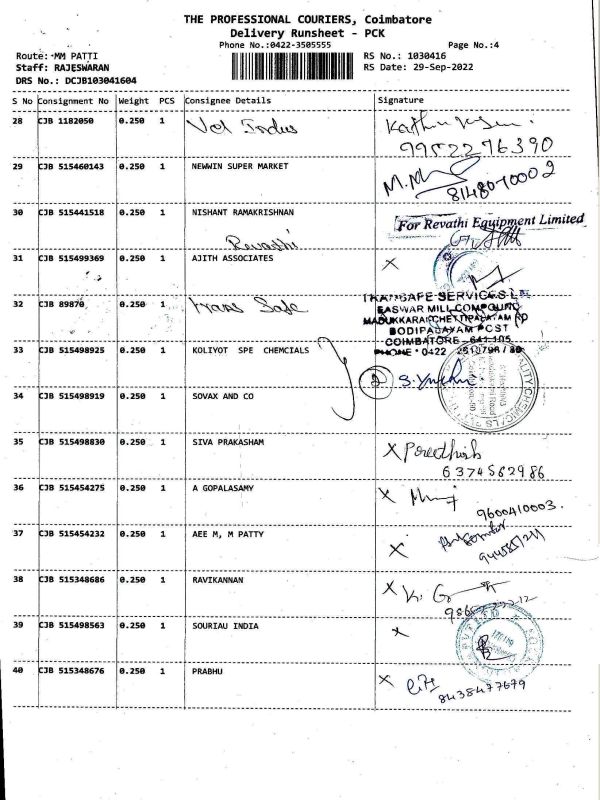 THE PROFESSIONAL COURIERS, Coimbatore
Delivery Runsheet - PCK
Phone No.:0422-3505555 Page No.:4
Route: MM PATTI RS No.: 1030416
Staff: RAJESWARAN RS Date: 29-Sep-2022
DRS No.: DCJB103041604
S No Consignment No Weight PCS Consignee Details Signature
28 CJB 1182050 0.250 1 Vel Indus
9952276390
29 CJB 515460143 0.250 1 NEWWIN SUPER MARKET
30 CJB 515441518 0.250 1 NISHANT RAMAKRISHNAN
For Revathi Equipment Limited
Revathi
31 CJB 515499369 0.250 1 AJITH ASSOCIATES X
32 CJB 89870 0.250 1 trans Safe
TRANSAFE SERVICES L
EASWAR MILL COMPOUND
MADUKKARAI CHETTIPALAYAM RD
BODIPALAYAM POST
COIMBATORE - 641 105
PHONE : 0422
33 CJB 515498925 0.250 1 KOLIYOT SPE CHEMCIALS
2
34 CJB 515498919 0.250 1 SOVAX AND CO
35 CJB 515498830 0.250 1 SIVA PRAKASHAM X
6374562986
36 CJB 515454275 0.250 1 A GOPALASAMY X
9600410003.
37 CJB 515454232 0.250 1 AEE M, M PATTY X
38 CJB 515348686 0.250 1 RAVIKANNAN X
39 CJB 515498563 0.250 1 SOURIAU INDIA X
40 CJB 515348676 0.250 1 PRABHU X
8438477679